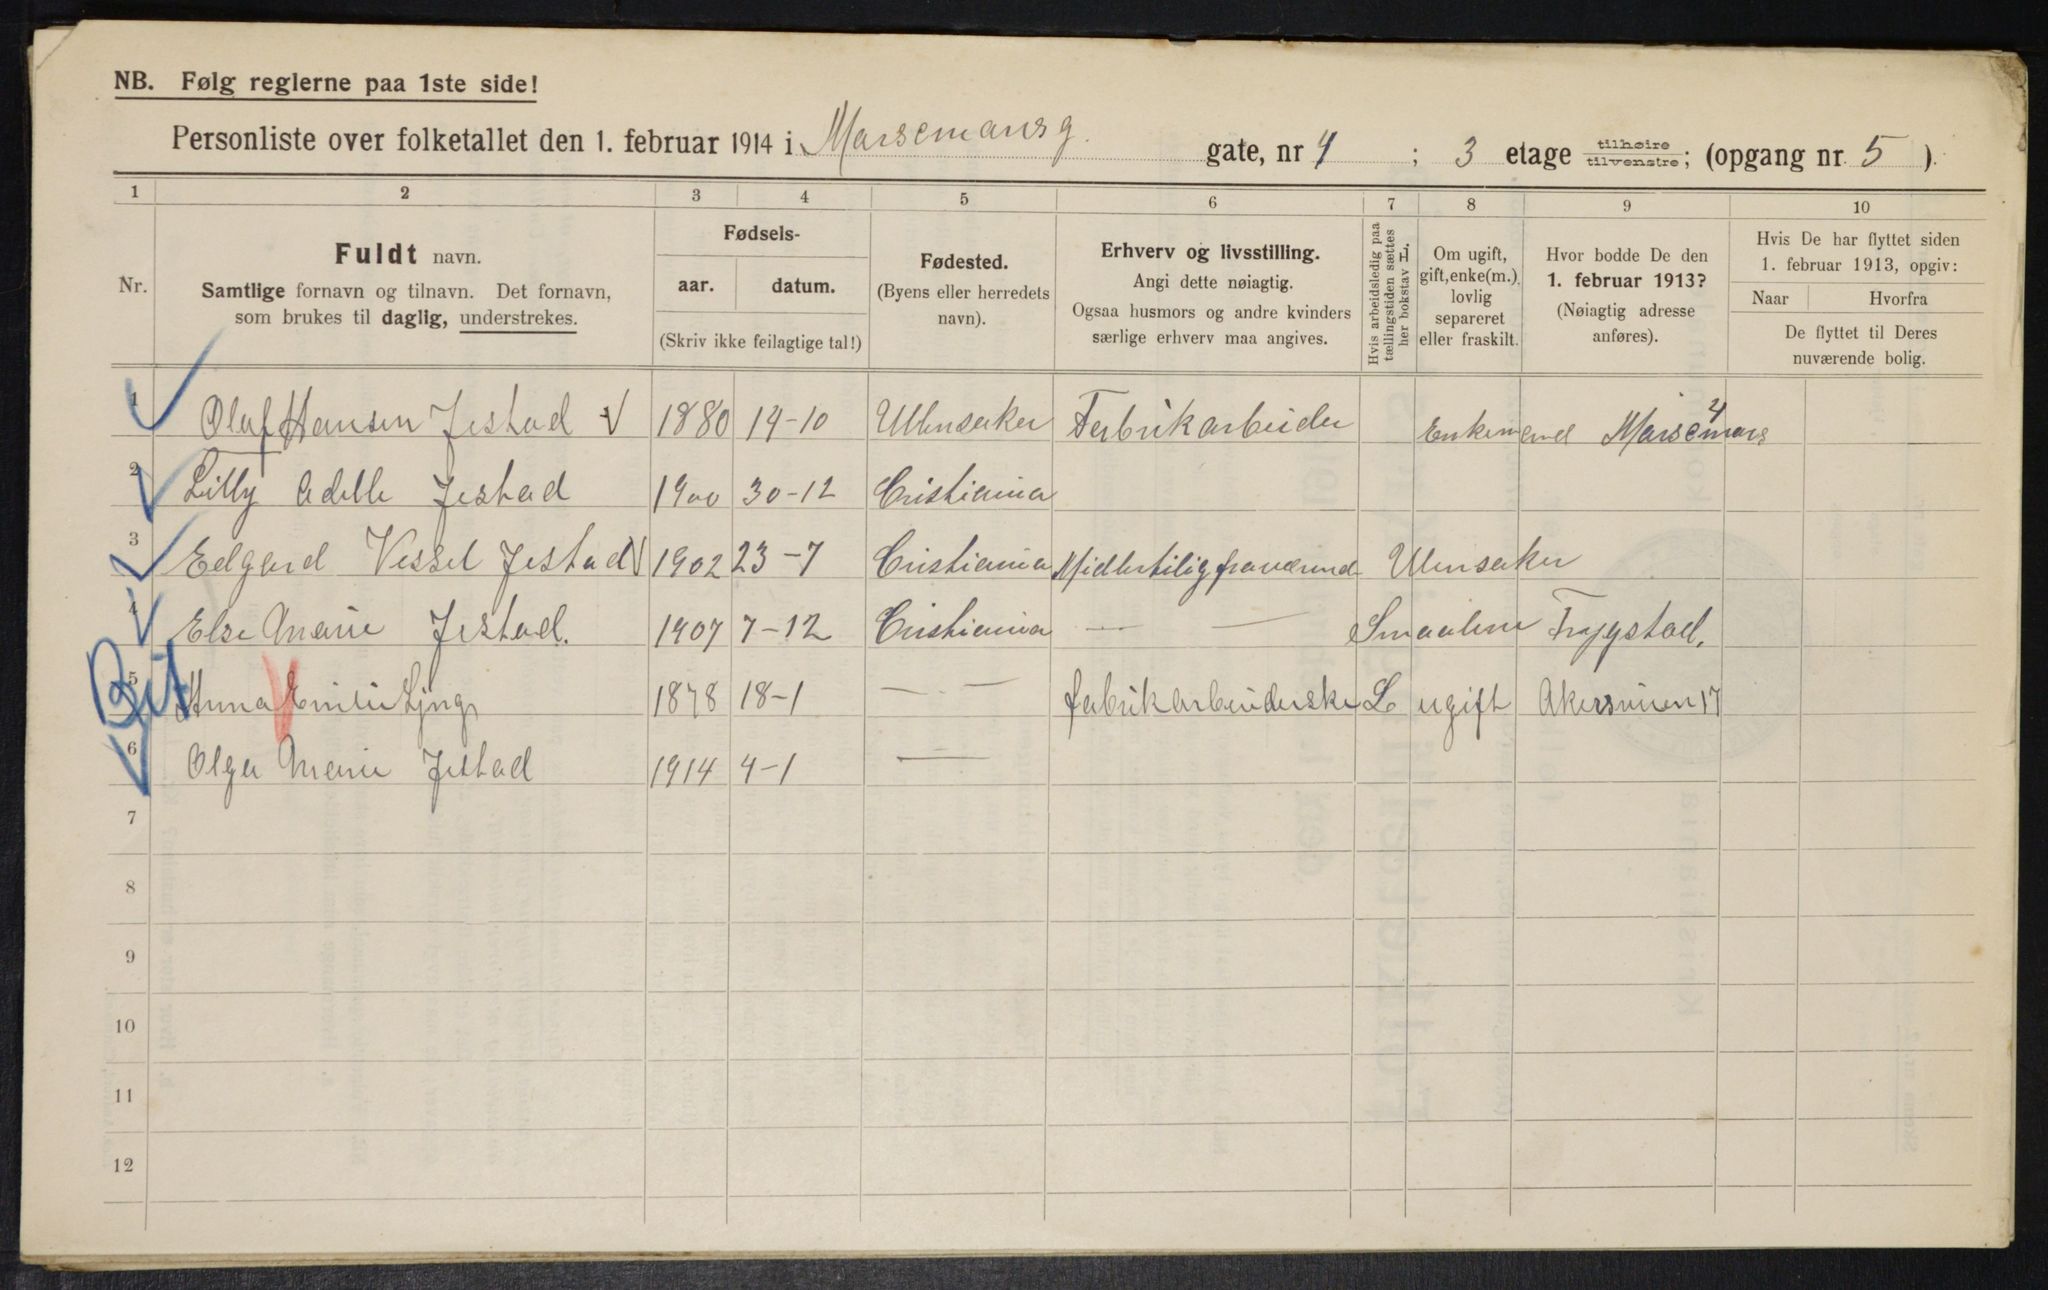 NB. Følg reglerne paa 1ste side!
Personliste over folketallet den 1. februar 1914 i Marsemansg. gate, nr 4 ; 3 etage tilhøire/tilvenstre; (opgang nr. 5 ).
1 2 3 4 5 6 7 8 9 10
Nr.
Fuldt navn.
Samtlige fornavn og tilnavn. Det fornavn,
som brukes til daglig, understrekes.
Fødsels-
aar. datum.
(Skriv ikke feilagtige tal!)
Fødested.
(Byens eller herredets
navn).
Erhverv og livsstilling.
Angi dette nøiagtig.
Ogsaa husmors og andre kvinders
særlige erhverv maa angives.
Hvis arbeidsledig paa
tællingstiden sættes
her bokstav L.
Om ugift,
gift, enke(m.),
lovlig
separeret
eller fraskilt.
Hvor bodde De den
1. februar 1913?
(Nøiagtig adresse
anføres).
Hvis De har flyttet siden
1. februar 1913, opgiv:
Naar Hvorfra
De flyttet til Deres
nuværende bolig.
1 Olaf Hansen Jestad 1880 14-10 Ullensaker Fabrikarbeider Enkemand Marsemans 4
2 Lilly Adelle Jestad 1900 30-12 Cristiania
3 Edgard Vessel Jestad 1902 23-7 Cristiania Midlertilig fraværend Ulensaker
4 Else Marie Jestad. 1907 7-12 Cristiania — — Smaalene Trygstad.
5 Anna Emilie Ljng 1878 18-1 — — fabrikarbeiderske L ugift Akersveien 17
6 Olga Marie Jestad 1914 4-1 —
7
8
9
10
11
12